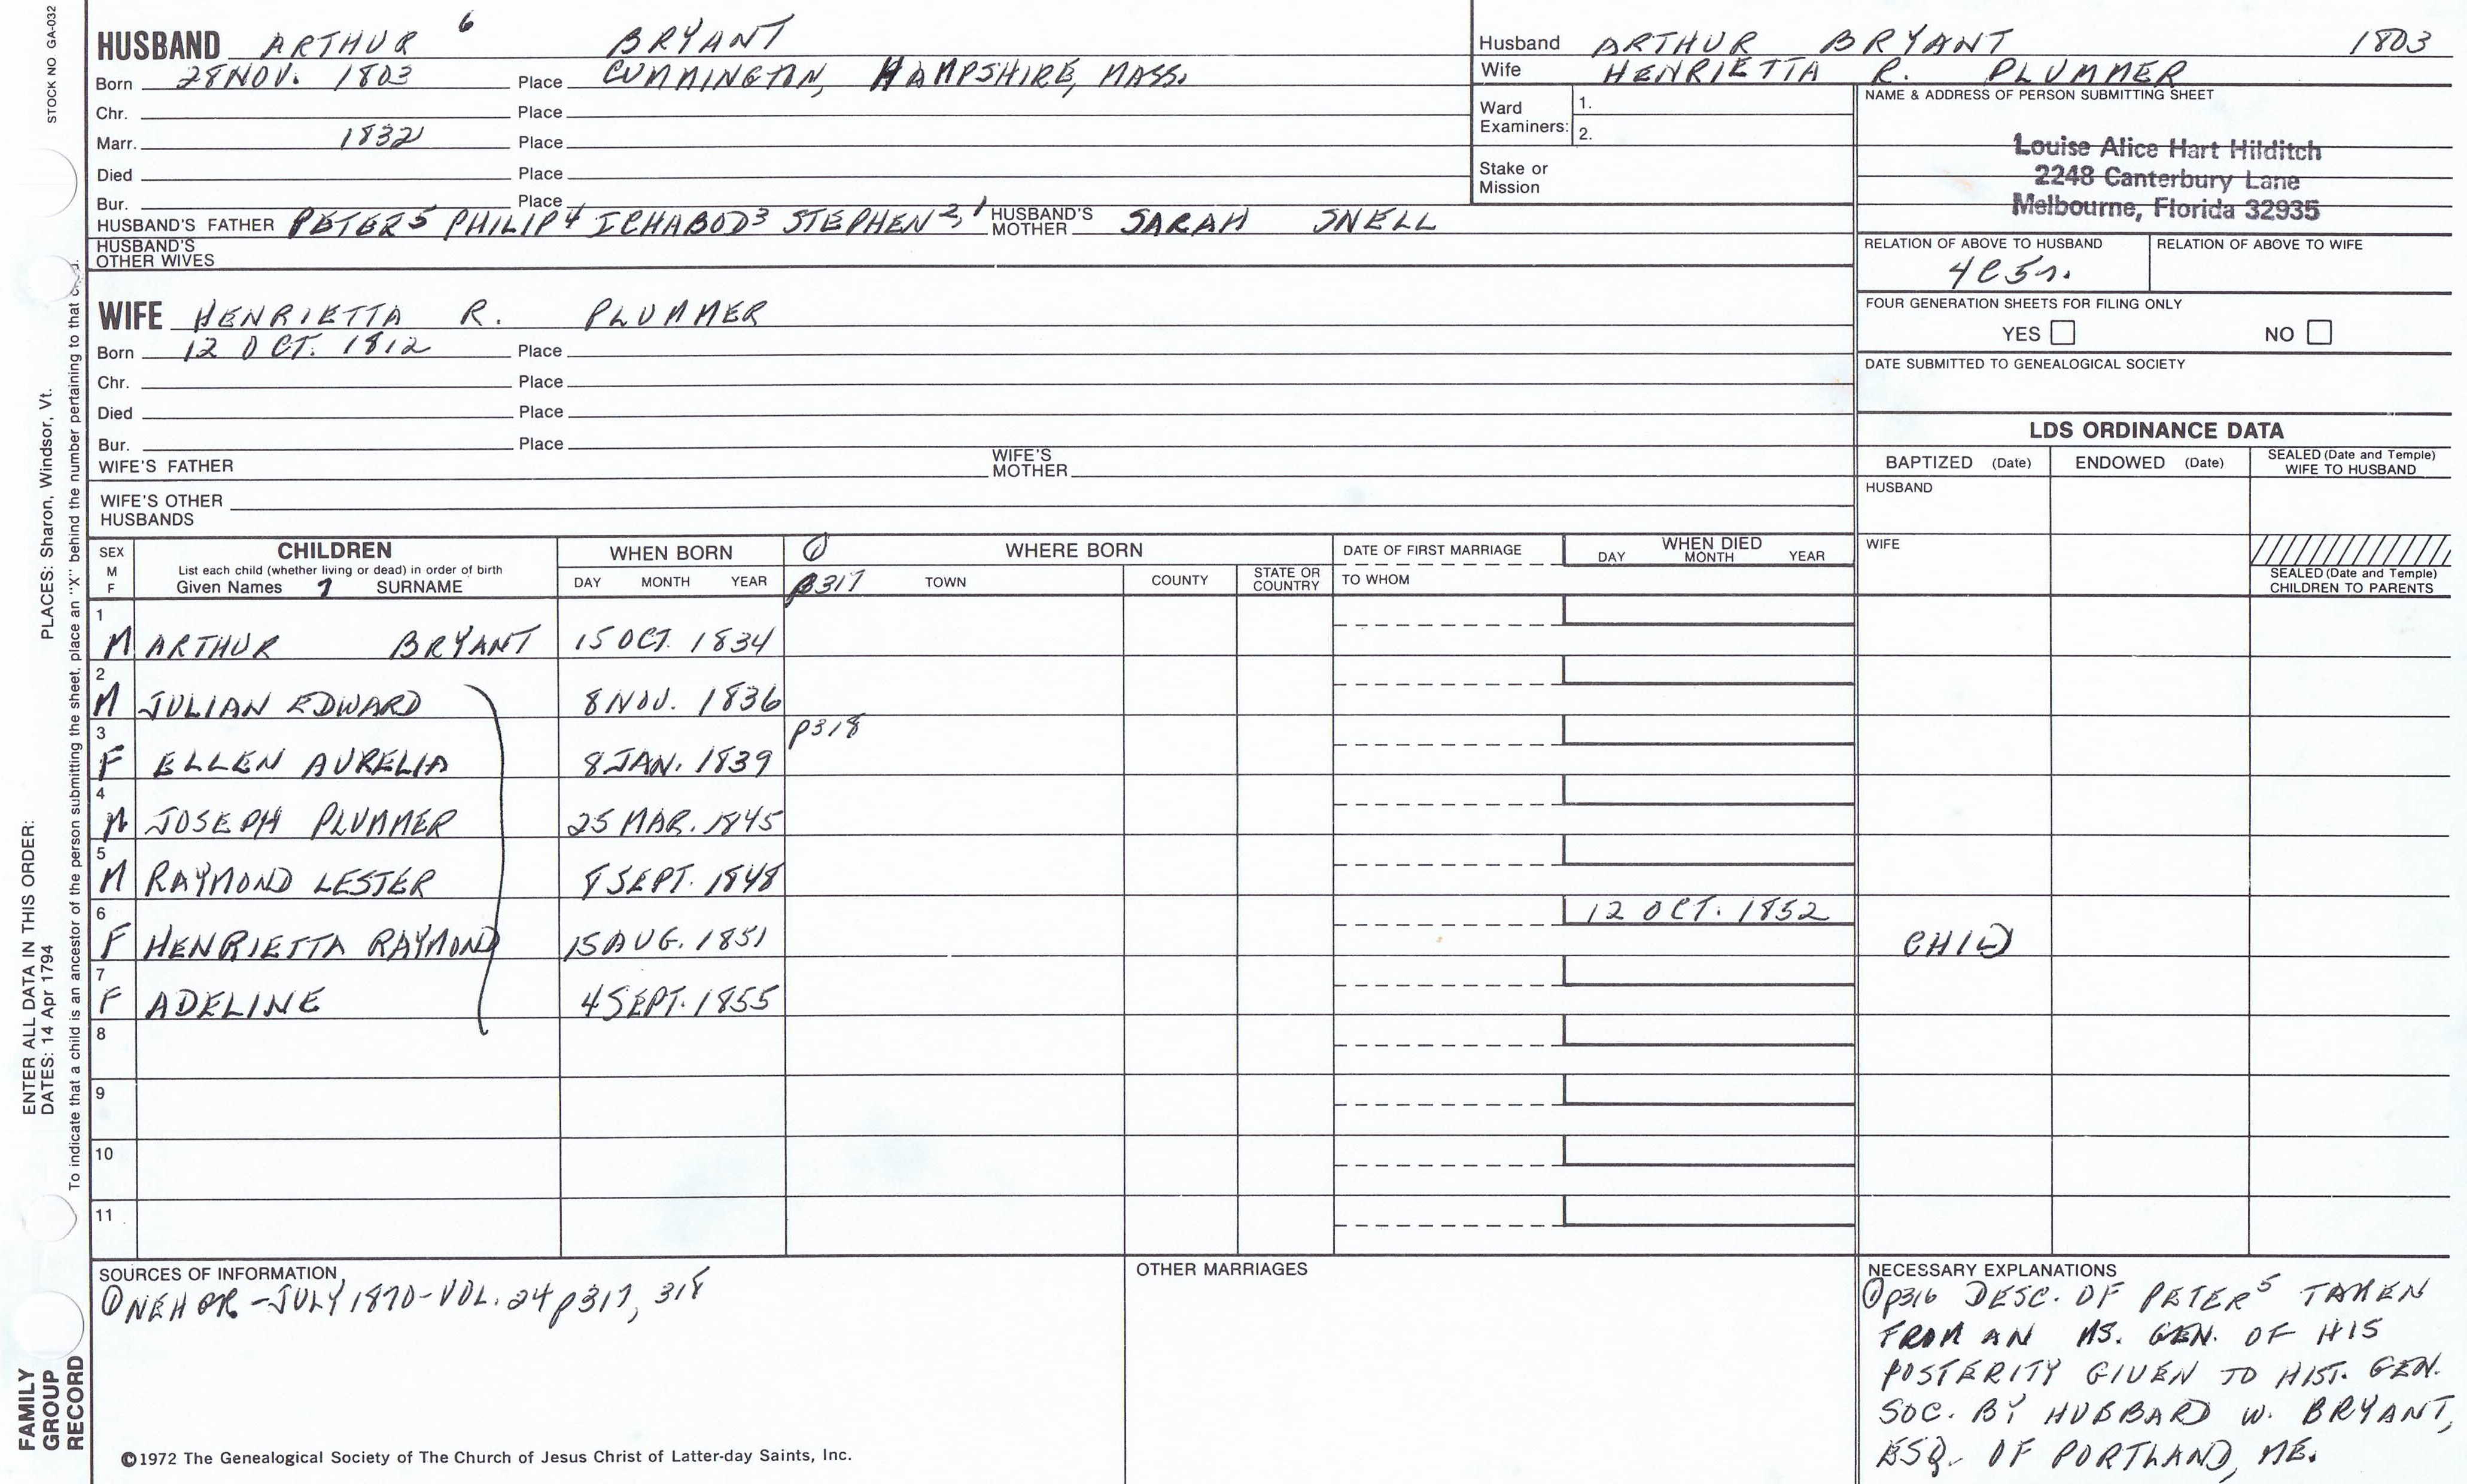 STOCK NO GA-032
PLACES: Sharon, Windsor, Vt.
ENTER ALL DATA IN THIS ORDER:
DATES: 14 Apr 1794
To indicate that a child is an ancestor of the person submitting the sheet, place an "X" behind the number pertaining to that
FAMILY
GROUP
RECORD
HUSBAND ARTHUR 6 BRYANT
Born 28 NOV. 1803 Place CUMMINGTON, HAMPSHIRE, MASS.
Chr. Place
Marr. 1832 Place
Died Place
Bur. Place
HUSBAND'S FATHER PETER5 PHILIP4 ICHABOD3 STEPHEN2,1 HUSBAND'S MOTHER SARAH SNELL
HUSBAND'S
OTHER WIVES
WIFE HENRIETTA R. PLUMMER
Born 12 OCT. 1812 Place
Chr. Place
Died Place
Bur. Place
WIFE'S FATHER WIFE'S MOTHER
WIFE'S OTHER
HUSBANDS
Husband ARTHUR BRYANT 1803
Wife HENRIETTA R. PLUMMER
Ward
Examiners:
1.
2.
Stake or
Mission
NAME & ADDRESS OF PERSON SUBMITTING SHEET
Louise Alice Hart Hilditch
2248 Canterbury Lane
Melbourne, Florida 32935
RELATION OF ABOVE TO HUSBAND RELATION OF ABOVE TO WIFE
4C5r.
FOUR GENERATION SHEETS FOR FILING ONLY
YES NO
DATE SUBMITTED TO GENEALOGICAL SOCIETY
LDS ORDINANCE DATA
BAPTIZED (Date) ENDOWED (Date) SEALED (Date and Temple)
WIFE TO HUSBAND
HUSBAND
WIFE
SEALED (Date and Temple)
CHILDREN TO PARENTS
SEX
M
F
CHILDREN
List each child (whether living or dead) in order of birth
Given Names 7 SURNAME
WHEN BORN
DAY MONTH YEAR
① WHERE BORN
p317 TOWN COUNTY STATE OR COUNTRY
DATE OF FIRST MARRIAGE
TO WHOM
WHEN DIED
DAY MONTH YEAR
1
M ARTHUR BRYANT 15 OCT. 1834
2
M JULIAN EDWARD 8 NOV. 1836
3 p318
F ELLEN AURELIA 8 JAN. 1839
4
M JOSEPH PLUMMER 25 MAR. 1845
5
M RAYMOND LESTER 8 SEPT. 1848
6 12 OCT. 1852
F HENRIETTA RAYMOND 15 AUG. 1851 CHILD
7
F ADELINE 4 SEPT. 1855
8
9
10
11
SOURCES OF INFORMATION
① NEHGR - JULY 1870 - VOL. 24 p317, 318
OTHER MARRIAGES
NECESSARY EXPLANATIONS
① p316 DESC. OF PETER5 TAKEN
FROM AN MS. GEN. OF HIS
POSTERITY GIVEN TO HIST. GEN.
SOC. BY HUBBARD W. BRYANT,
ESQ. OF PORTLAND, ME.
©1972 The Genealogical Society of The Church of Jesus Christ of Latter-day Saints, Inc.